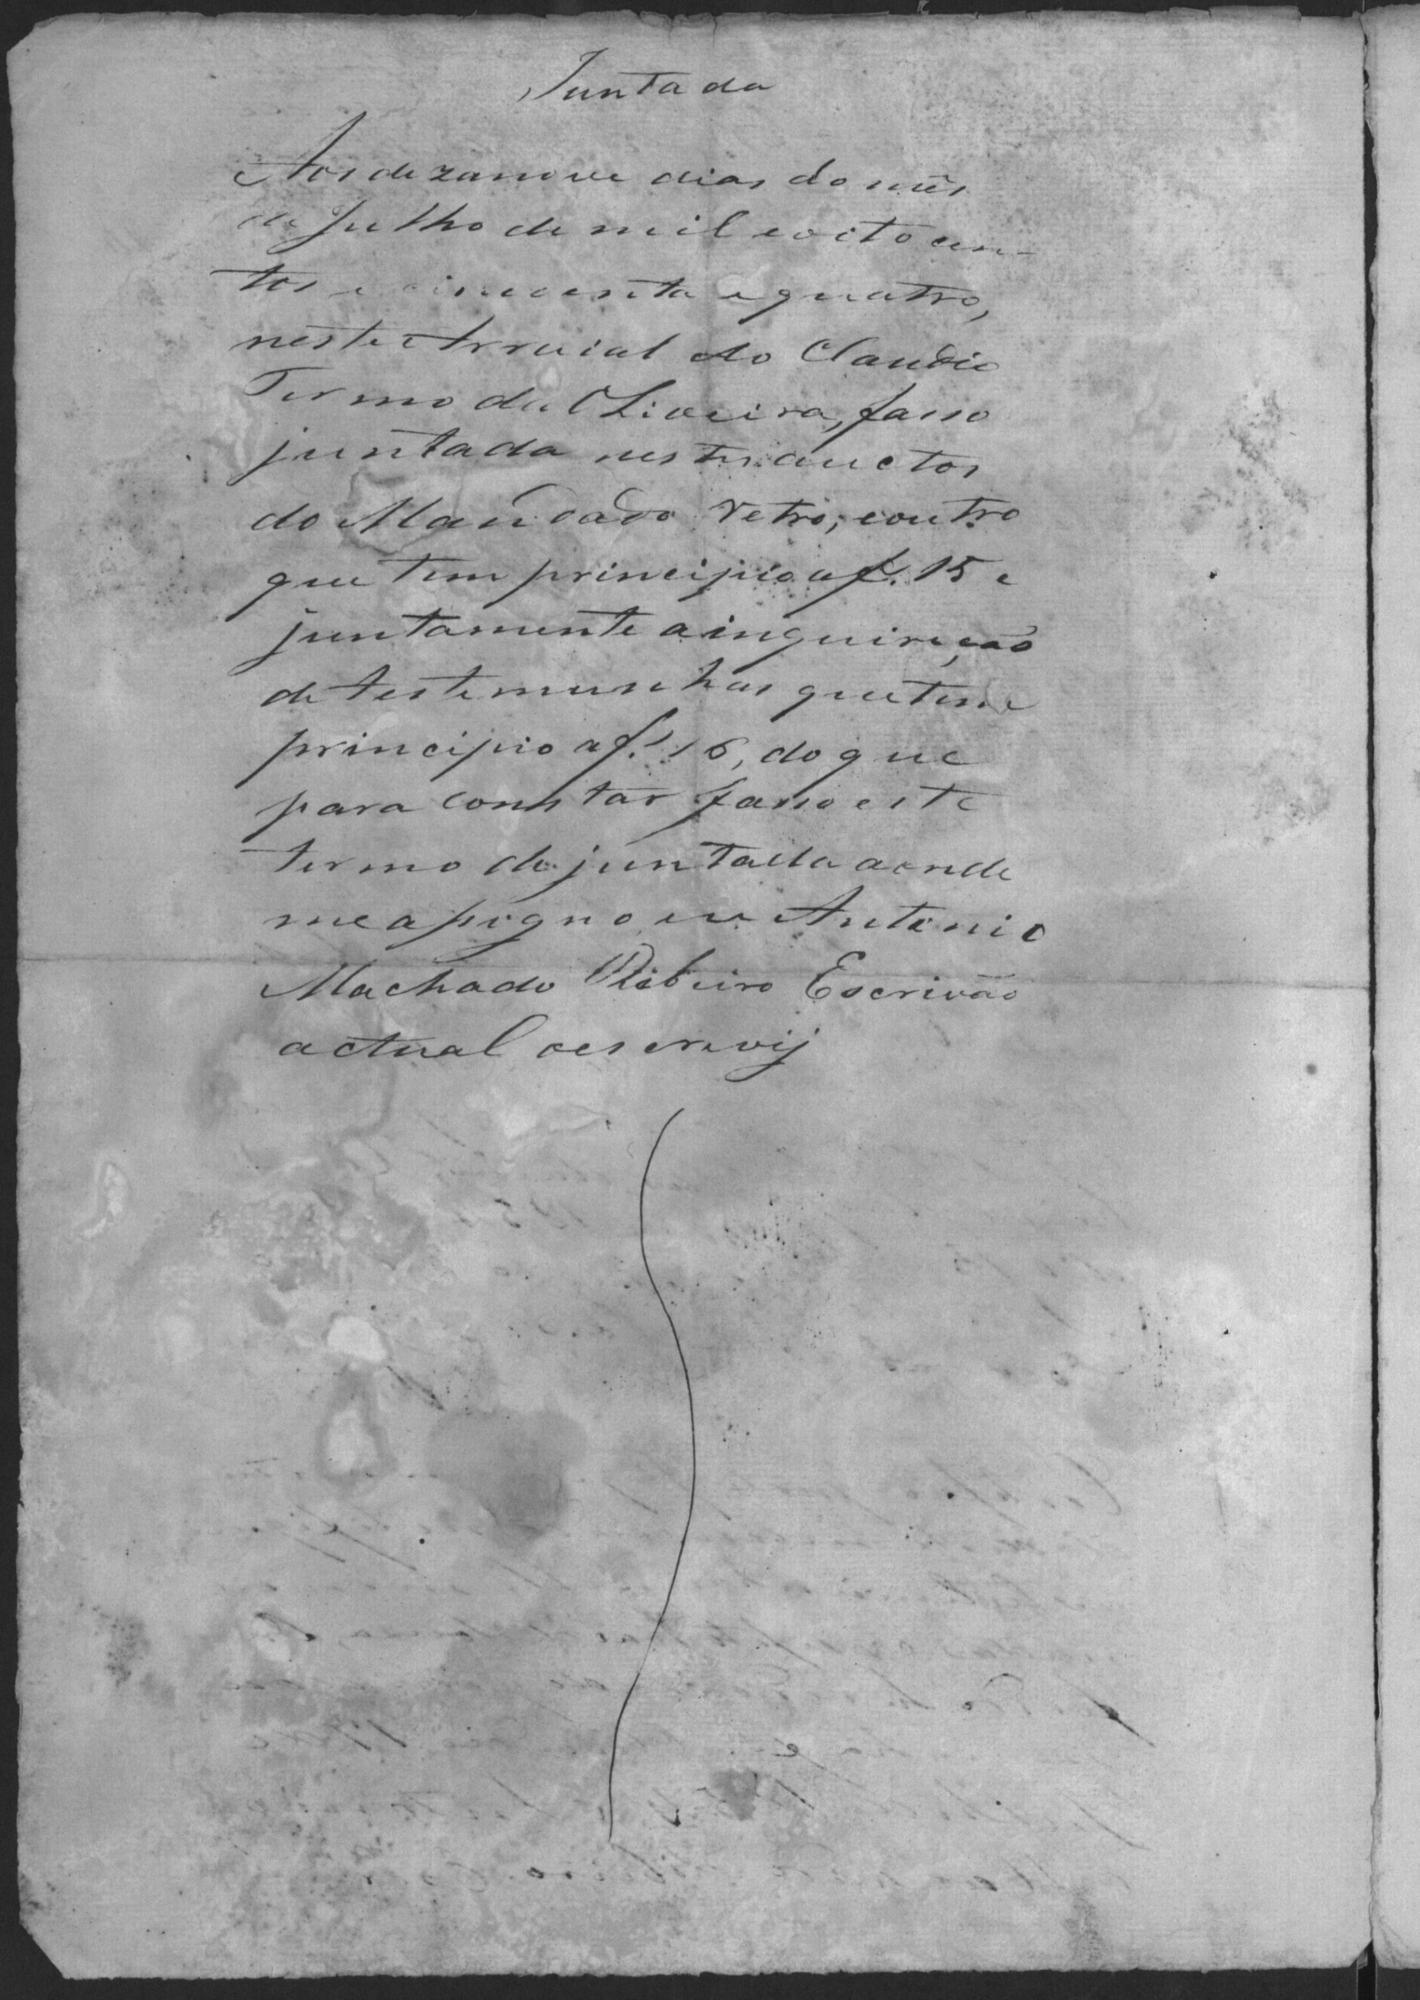 Juntada
Aos dezanove dias do mês
de Julho de mil e oito cen-
tos e cincoenta e quatro,
neste Arraial do Claudio
Termo da Oliveira, fasso
juntada nestes auctos
do Mandado retro, e outro
que tem principio a f. 15 e
juntamente a inquirição
de testemunhas que tem
principio a f. 16, do que
para constar fasso este
termo de juntada aonde
me apigno, eu Antonio
Machado Ribeiro Escrivão
actual o escrevij